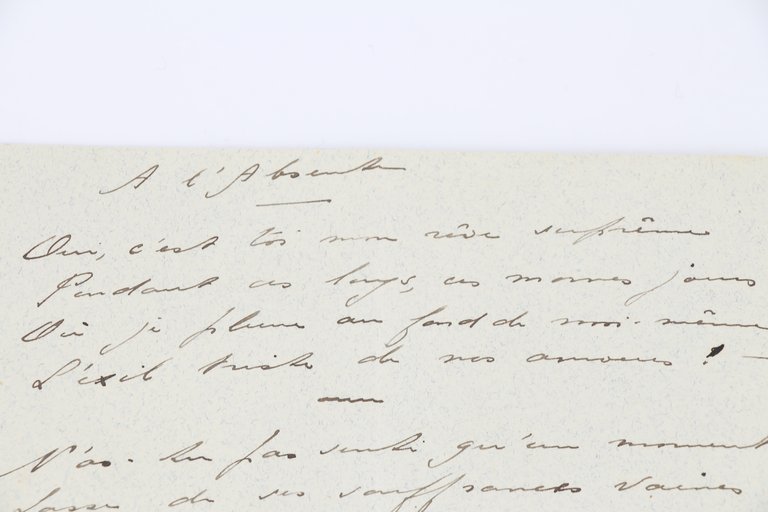 A l'Absente
Oui, c'est toi mon rêve suprême
Pendant ces longs, ces mornes jours
Où je pleure au fond de moi-même
L'exil triste de nos amours ! —
N'as-tu pas senti qu'un moment
Lasse de ses souffrances vaines